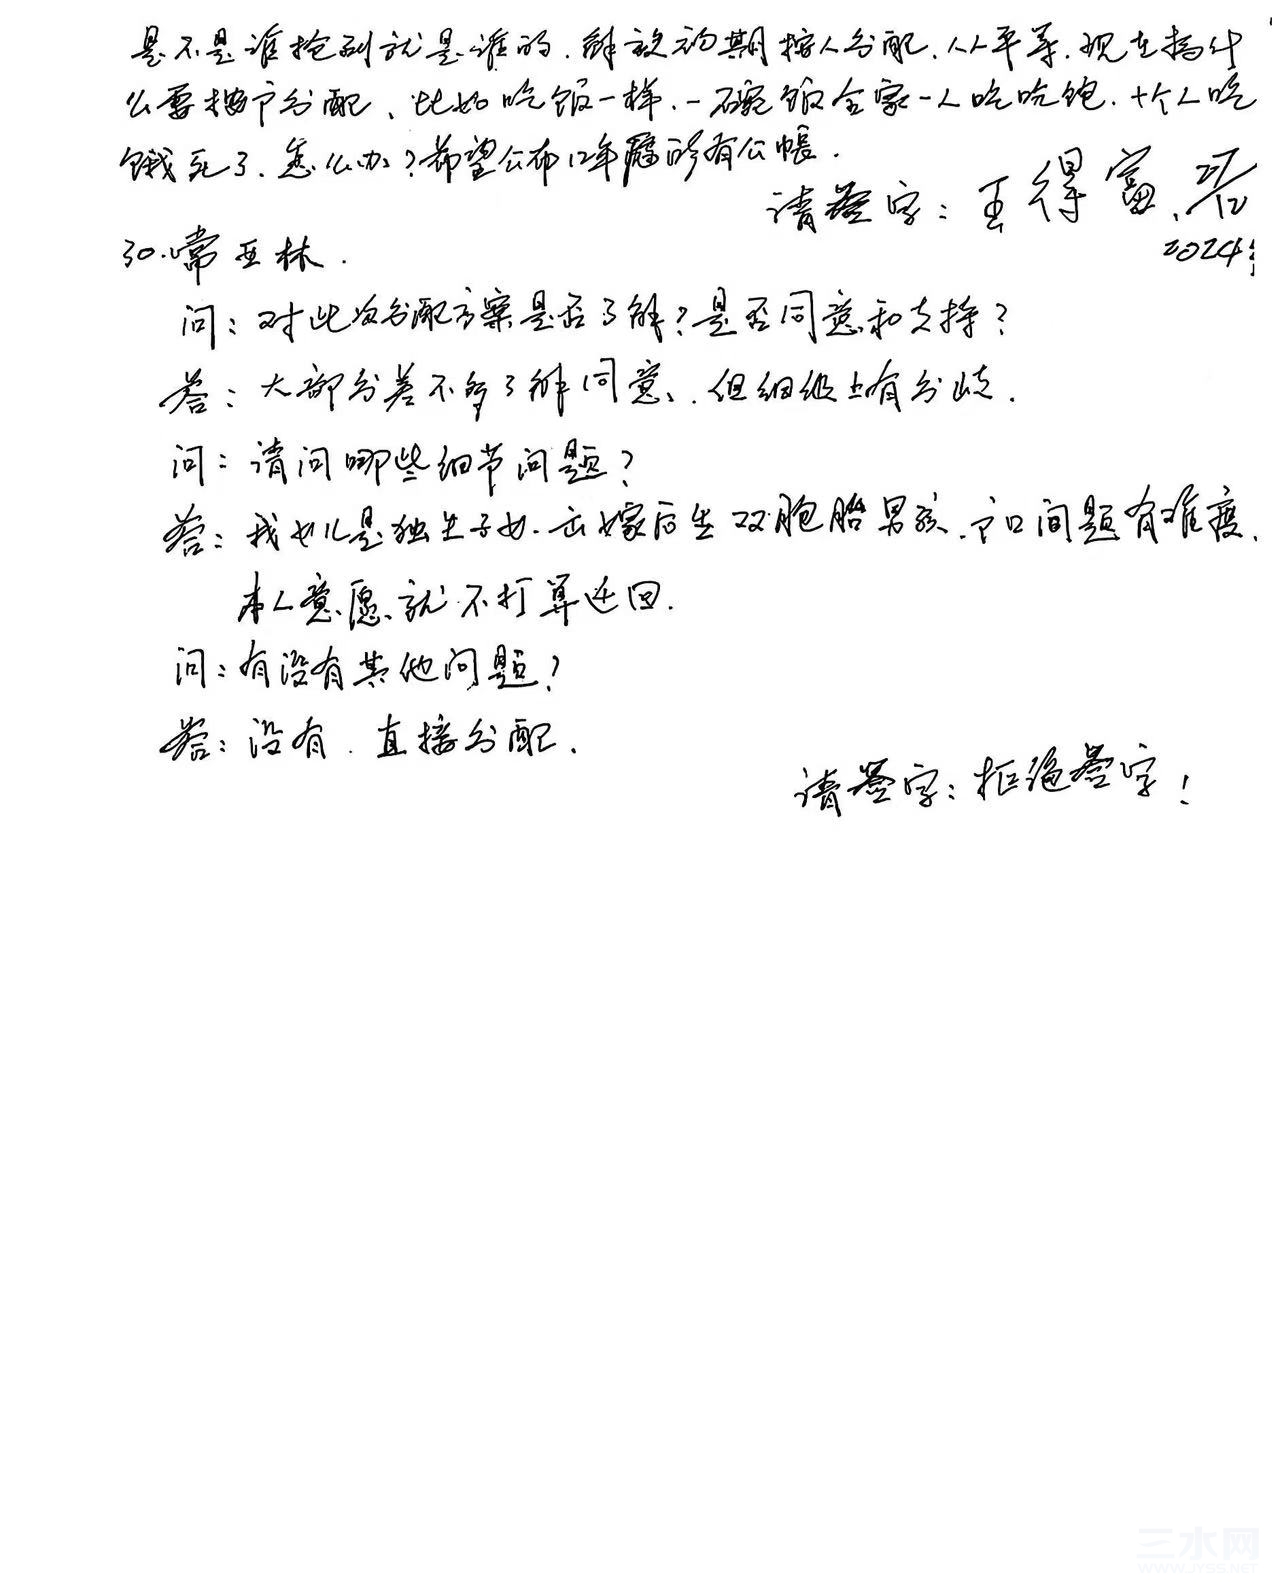 是不是谁抢到就是谁的.解放初期按人分配.人人平等.现在搞什
么要按户分配、比如吃饭一样.一碗饭全家一人吃吃饱.十个人吃
饿死了.怎么办?希望公布12年 所有公帐.
请签字:王得富.27/12
2024年
30.常亚林.
问:对此次分配方案是否了解?是否同意和支持?
答:大部分差不多了解同意、.但细微上有分歧.
问:请问哪些细节问题?
答:我女儿是独生子女.出嫁后生双胞胎男孩.户口问题有难度.
本人意愿就不打算迁回.
问:有没有其他问题?
答:没有.直接分配.
请签字:拒绝签字!
三水网
WWW.JYSS.NET